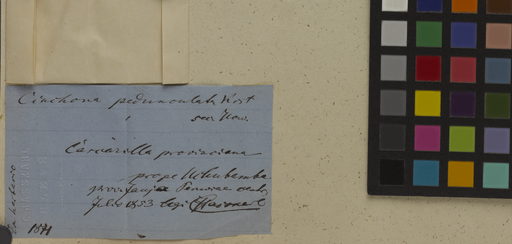 Cinchona pedunculata Karst
sec. How.
Cascarilla provinciana
prope Uchubamba
prov. Jauja Peruviae
Julio 1853 legi
1871